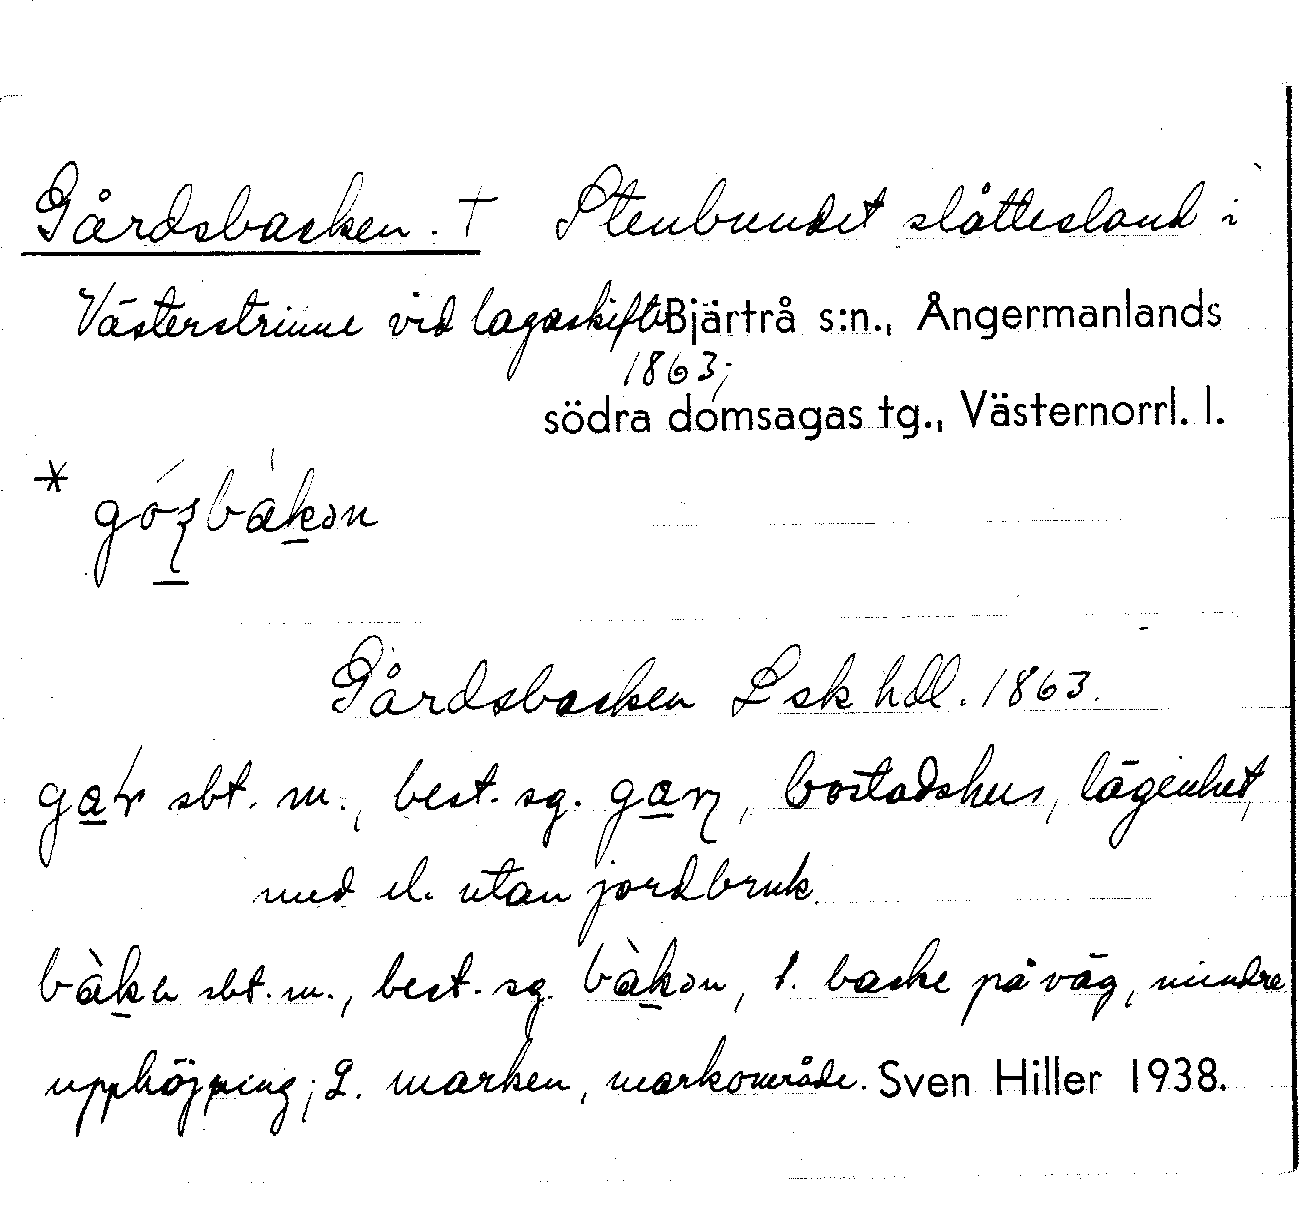 Gårdsbacken. † Stenbundet slåttesland i
Västerstrinne vid lagaskifte Bjärtrå s:n., Ångermanlands
1863;
södra domsagas tg., Västernorrl. l.
*
Gårdsbacken Lsk hdl. 1863.
sbt. m., best. sg. bostadshus, lägenhet,
med el. utan jordbruk.
sbt. m., best. sg. bàkən, 1. backe på väg, mindre
upphöjning; 2. marken, markområde. Sven Hiller 1938.